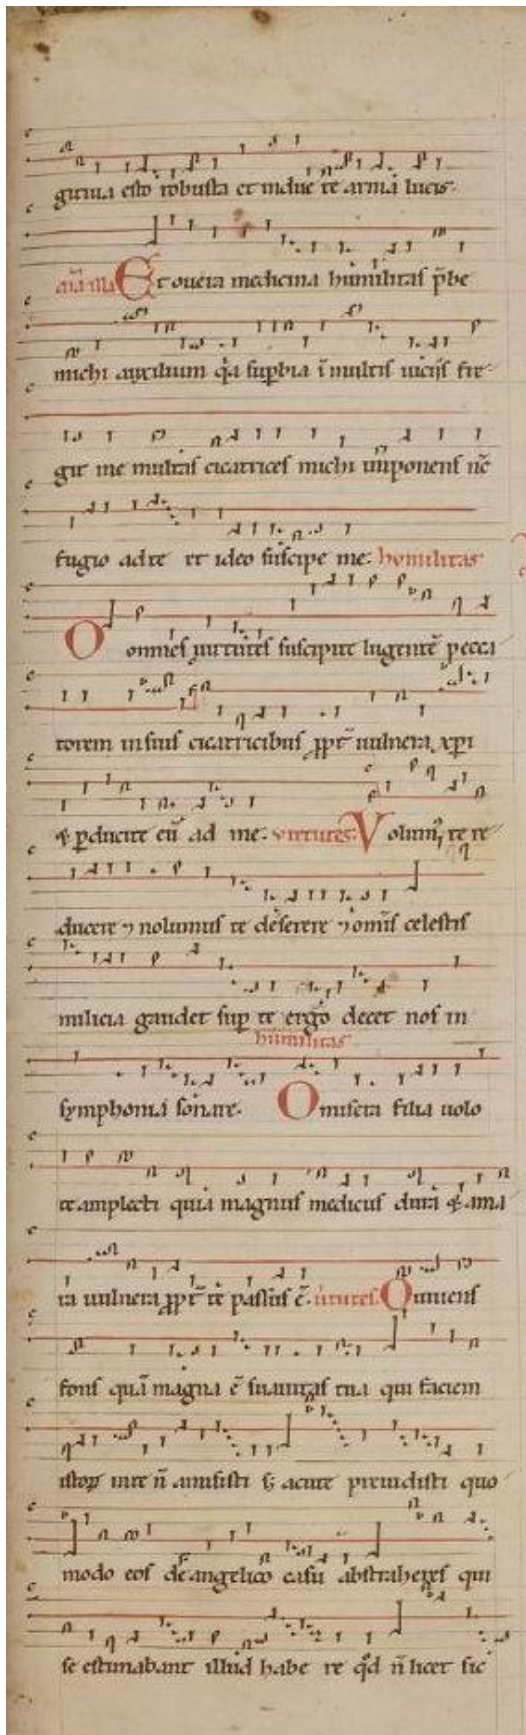 gitiua esto robusta et indue te arma lucis.
aīa illa Et o uera medicina humilitas p̄be
michi auxilium q̇a sup̱bia ī multis uiciis fre
git me multas cicatrices michi imponens nc̄
fugio ad te et ideo suscipe me. humilitas
O omnes uirtutes suscipite lugentē pecca
torem in suis cicatricibus ꝓpt̄ uulnera xp̄i
⁊ ꝑducite eū ad me. virtutes. Volum᷒ te re
ducere ⁊ nolumus te deserere ⁊ om̄is celestis
milicia gaudet sup̱ te ergo decet nos in
humilitas
symphonia sonare. O misera filia uolo
te amplecti quia magnus medicus dura ⁊ ama
ra uulnera ꝓpt̄ te passus ē. ūtutes. O uiuens
fons quā magna ē suauitas tua qui faciem
istoꝝ in te n̄ amisisti sꝫ acute preuidisti quo
modo eos de angelico casu abstraheres qui
se estimabant illud habe re qd̄ n̄ licet sic